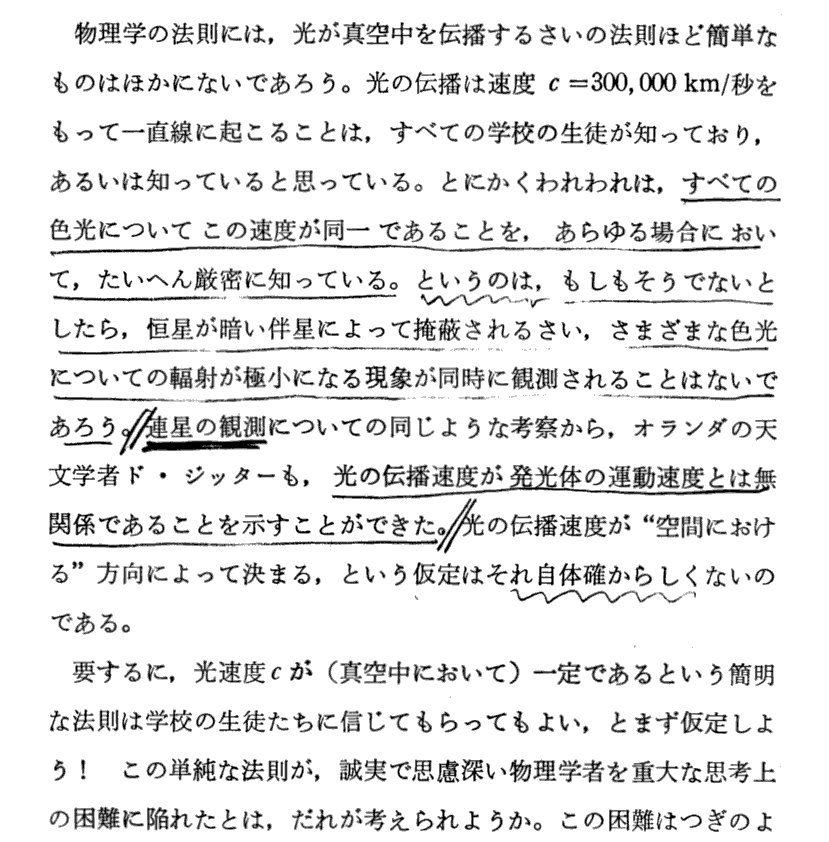 物理学の法則には，光が真空中を伝播するさいの法則ほど簡単な
ものはほかにないであろう。光の伝播は速度 c＝300,000 km/秒を
もって一直線に起こることは，すべての学校の生徒が知っており，
あるいは知っていると思っている。とにかくわれわれは，すべての
色光について この速度が同一 であることを，あらゆる場合に おい
て，たいへん厳密に知っている。というのは，もしもそうでないと
したら，恒星が暗い伴星によって掩蔽されるさい，さまざまな色光
についての輻射が極小になる現象が同時に観測されることはないで
あろう。連星の観測についての同じような考察から，オランダの天
文学者ド・ジッターも，光の伝播速度が 発光体の運動速度とは無
関係であることを示すことができた。光の伝播速度が“空間におけ
る”方向によって決まる，という仮定はそれ自体確からしくないの
である。
要するに，光速度 c が（真空中において）一定であるという簡明
な法則は学校の生徒たちに信じてもらってもよい，とまず仮定しよ
う！　この単純な法則が，誠実で思慮深い物理学者を重大な思考上
の困難に陥れたとは，だれが考えられようか。この困難はつぎのよ